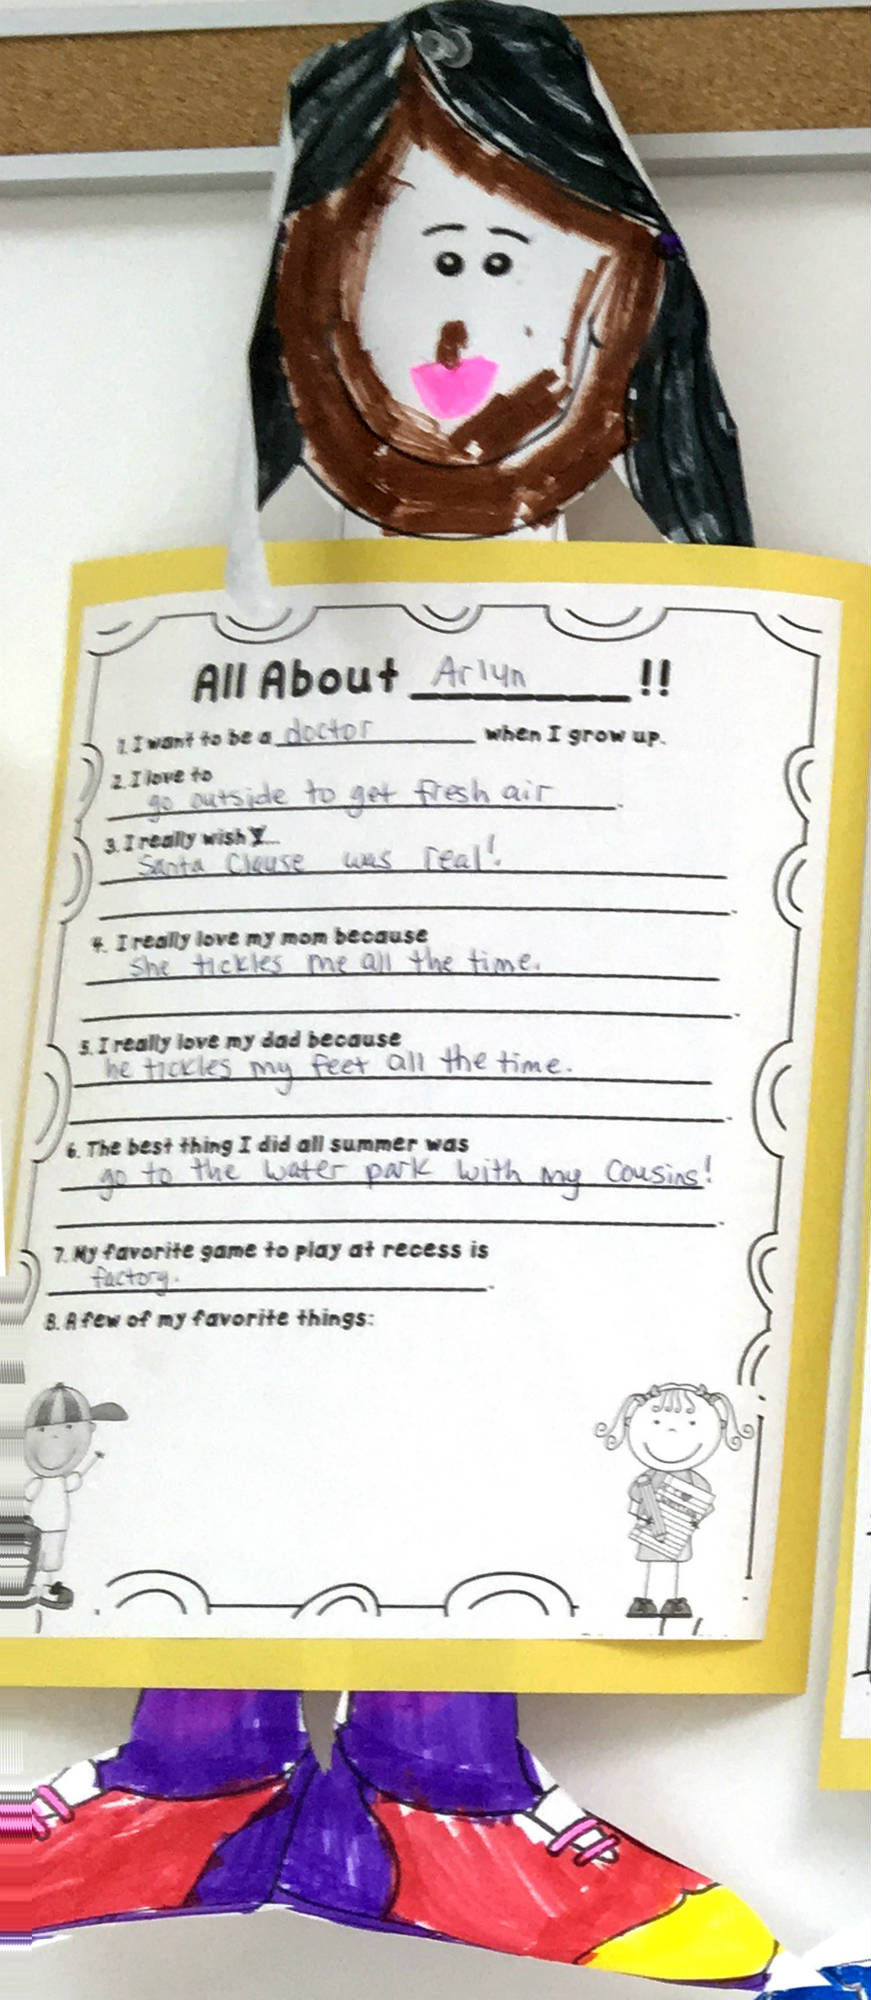 All About Arlyn !!
1. I want to be a doctor when I grow up.
2. I love to
go outside to get fresh air.
3. I really wish I...
Santa Clause was real!.
4. I really love my mom because
She tickles me all the time.
5. I really love my dad because
he tickles my feet all the time.
6. The best thing I did all summer was
go to the water park with my cousins!
7. My favorite game to play at recess is
factory.
8. A few of my favorite things: